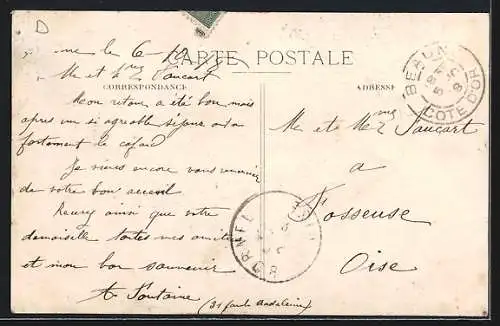 D
CARTE POSTALE
CORRESPONDANCE
ADRESSE
BEAUNE
COTE D'OR
ne le 6-10
Mr et Mme Faucart
Mon retour a été bon mais
après un si agréable séjour on a
fortement le cafard
Je viens encore vous remercier
de votre bon accueil
Recevez ainsi que votre
demoiselle toutes mes amitiés
et mon bon souvenir
A Fontaine
(31 faub Madeleine)
Mr et Mme Faucart
a
Fosseuse
Oise
ORNEL